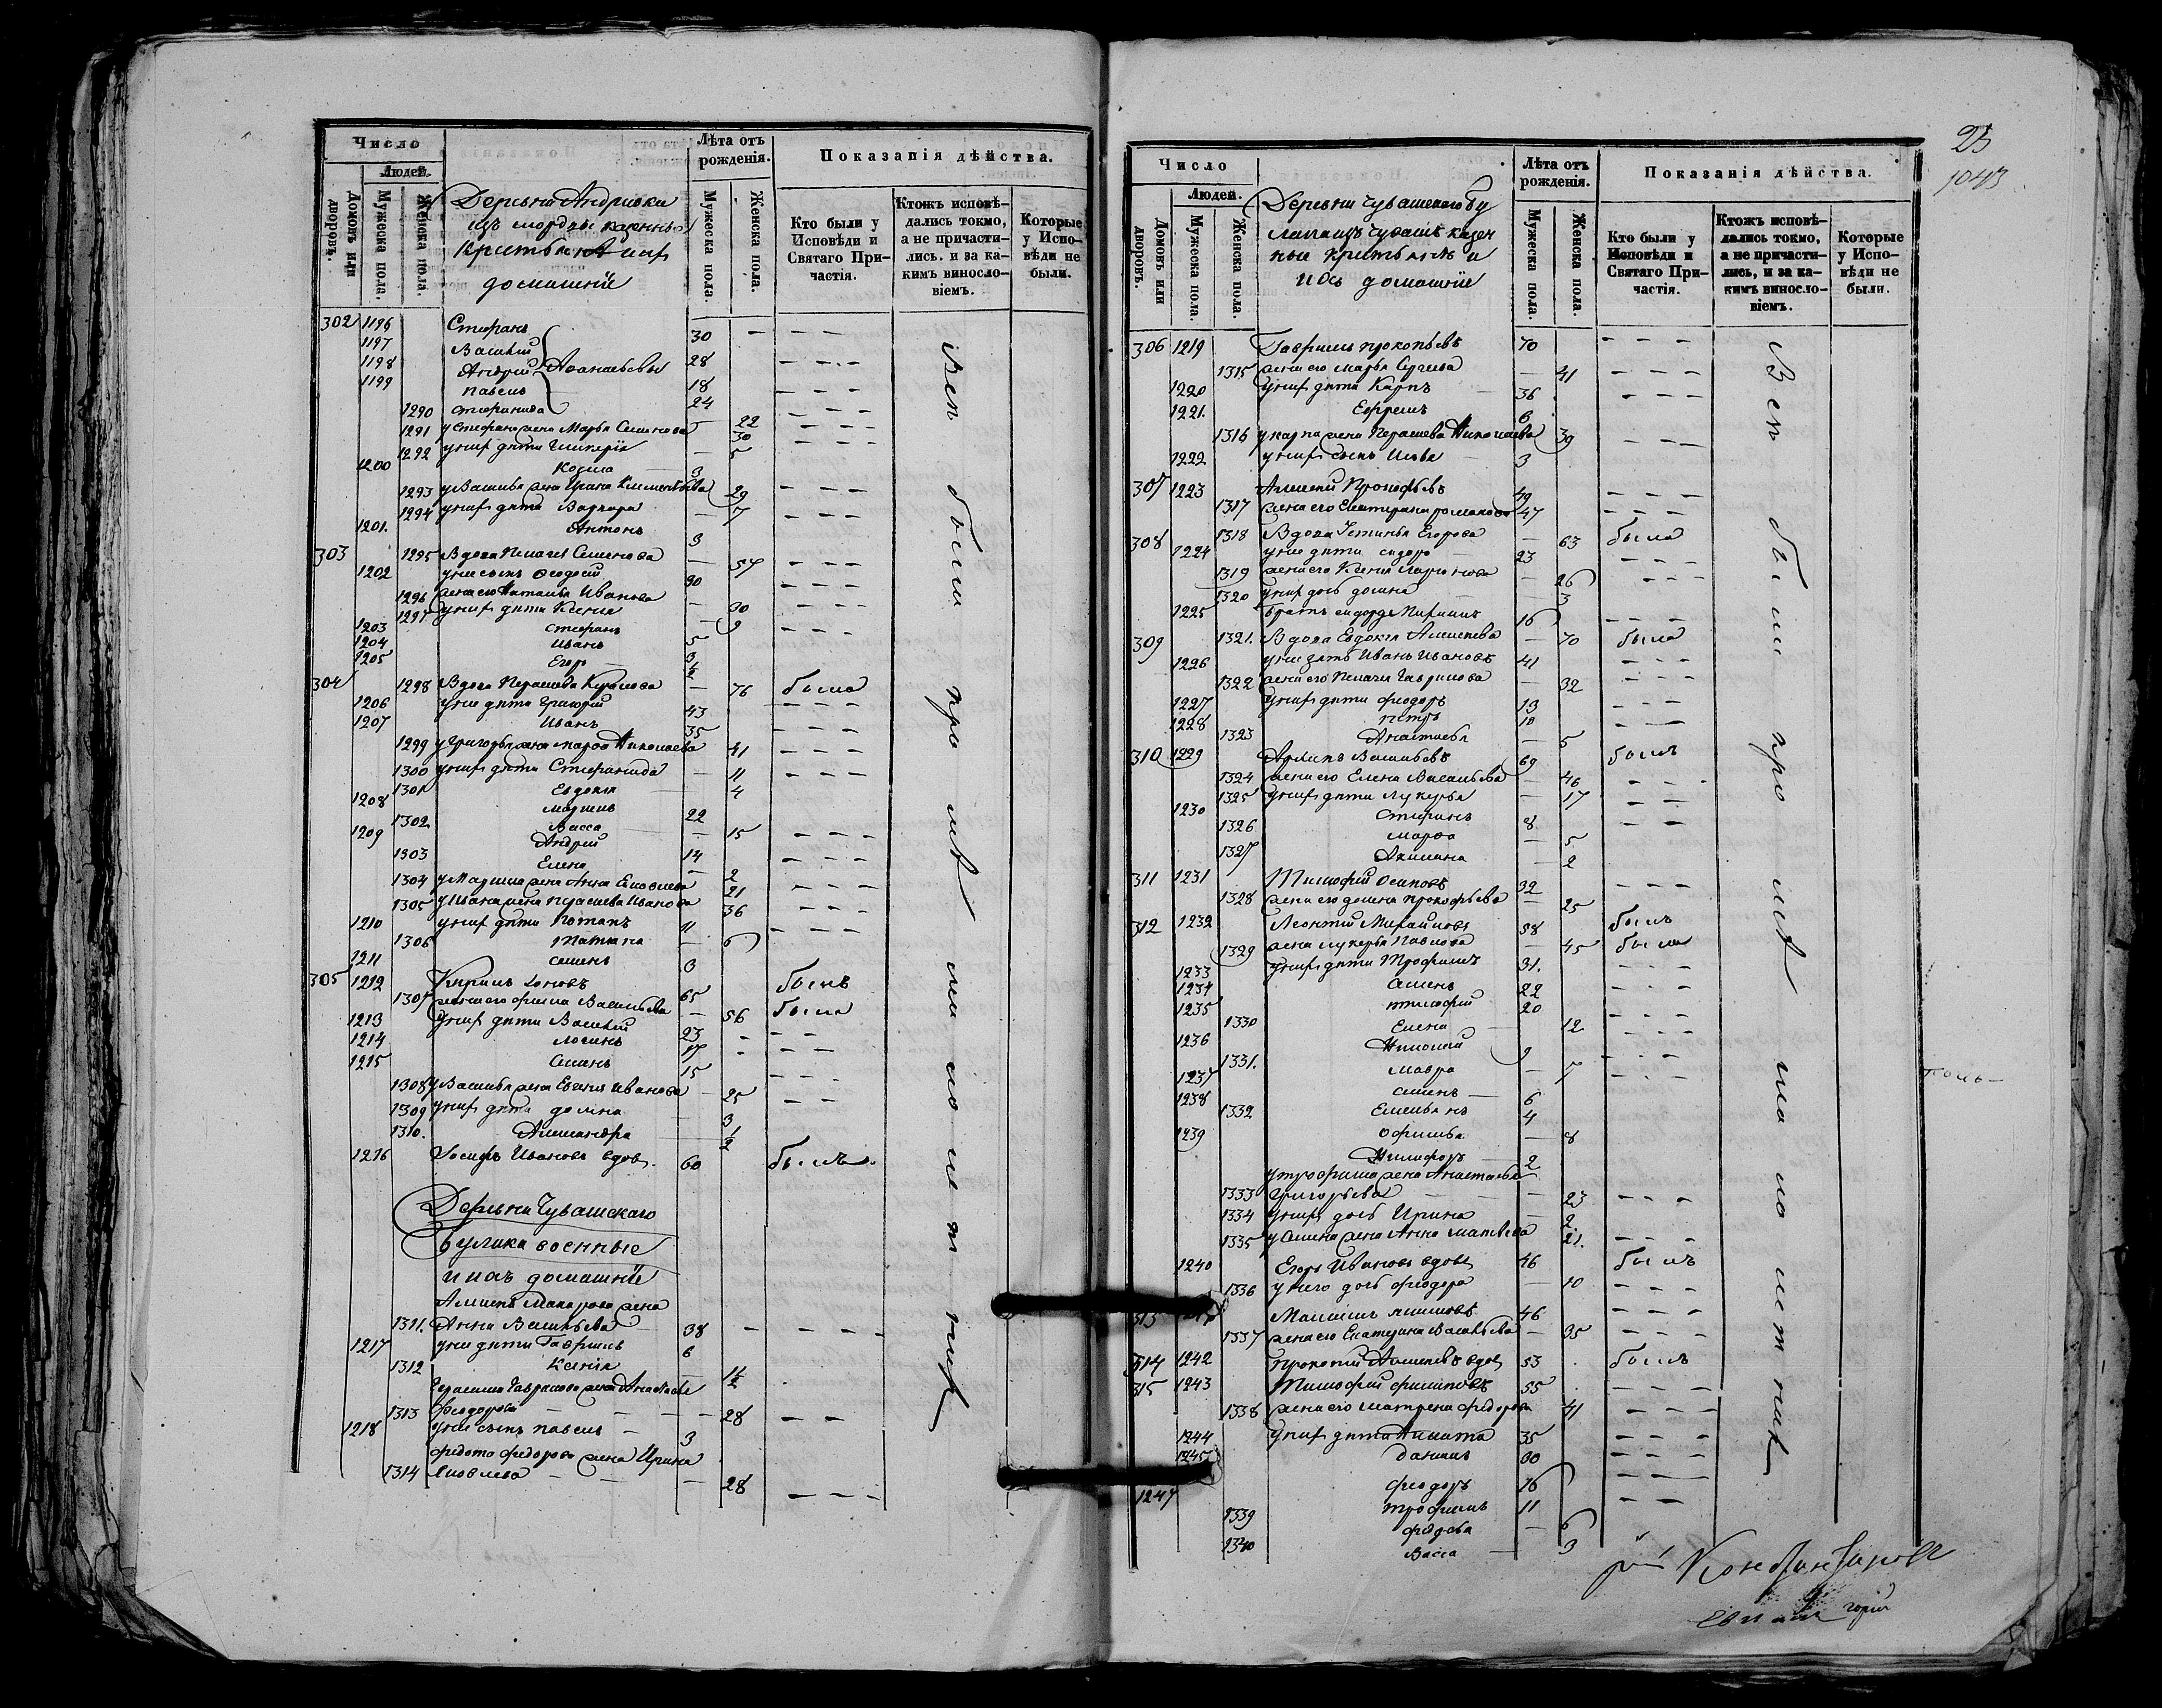 Число
Людей.
Домовъ или дворовъ.
Мужеска пола.
Женска пола.
Деревни Андріевки
изъ мордвы казенныя
крестьяне и ихъ
домашніе
Лѣта отъ рожденія.
Мужеска пола.
Женска пола.
Показанія дѣйства.
Кто были у Исповѣди и Святаго Причастія.
Ктожъ исповѣдались токмо, а не причастились. и за какимъ винословіемъ.
Которые у Исповѣди не были.
302 1196 Стефанъ 30
1197 Василій 28
1198 Андрей Аѳанасьевы 18
1199 Павелъ 24
1290 Стефанида 22
1291 у Стефана жена Марья Семенова 30
1292 у нихъ дѣти Гликерія 5
1200 Козма 3
1293 у Василья жена Ирина Клементьева 29
1294 у нихъ дѣти Варвара 7
1201. Антонъ 3
303 1295 Вдова Пелагея Семенова 57
1202 у нее сынъ Ѳеодосій 30
1296 жена его Наталья Иванова 30
1297 у нихъ дѣти Ксенія 9
1203 Стефанъ 5
1204 Иванъ 3
1205 Егоръ ½
304 1298 Вдова Парасковья 76 была
1206 у нее дѣти Григорій 43
1207 Иванъ 35
1299 у Григорья жена Марѳа Николаева 41
1300 у нихъ дѣти Стефанида 11
1301 Евдокія 4
1208 22
1302 Васса 15
1209 Андрей 14
1303 Елена 2
1304 жена Анна Яковлева 21
1305 у Ивана жена Иванова 36
1210 у нихъ дѣти Потапъ 11
1306 Татьяна 6
1211 Семенъ 3
305 1212 Кирилъ 65 былъ
1307 жена его Васильева 56 была
1213 у нихъ дѣти Василій 23
1214 Логинъ 17
1215 Семенъ 15
1308 у Василья жена Евгенія Иванова 25
1309 у нихъ дѣти Домна 3
1310. Александра ½
1216 Іосифъ Ивановъ вдов. 60 былъ
Деревни Чувашскаго
Буглака военные
и ихъ домашніе
Алексѣя Макарова жена
1311. Анна Васильева 38
1217 у нее дѣти Гаврилъ 6
1312 Ксенія 1½
Герасима Гаврилова жена Анастасія
1313 Ѳеодорова 28
1218 у нее сынъ Павелъ 3
Федота Федорова жена Ирина
1314 Яковлева 28
Всѣ были про
23
1043
Число
Людей.
Домовъ или дворовъ.
Мужеска пола.
Женска пола.
Деревни Чувашскаго Бу
глака изъ чувашъ казен
ные крестьяне и
ихъ домашніе
Лѣта отъ рожденія.
Мужеска пола.
Женска пола.
Показанія дѣйства.
Кто были у Исповѣди и Святаго Причастія.
Ктожъ исповѣдались токмо, а не причастились, и за какимъ винословіемъ.
Которые у Исповѣди не были.
306 1219 Гаврилъ Прокопьевъ 70
1315 жена его Марья Сергѣева 41
1220 у нихъ дѣти Карпъ 36
1221. Ефремъ 6
1316 у Карпа жена Николаева 39
1222 у нихъ сынъ Илья 3
307 1223 Алексѣй Прокофьевъ 49
1317 жена его Екатерина Романова 47
308 1318 Вдова Устинья Егорова 63 была
1224 у нее дѣти Сидоръ 23
1319 жена его Ксенія 26
1320 у нихъ дочь Домна 3
1225 братъ Сидора 16
309 1321. Вдова Евдокія Алексѣева 70 была
1226 у нее зять Иванъ Ивановъ 41
1322 жена его Пелагея Гаврилова 32
1227 у нихъ дѣти Ѳеодоръ 13
1228 Петръ 10
1323 Анастасья 5
310 1229 Архипъ Васильевъ 69 былъ
1324 жена его Елена Васильева 46
1325 у нихъ дѣти Лукерья 17
1230 Стефанъ 8
1326 Марѳа 5
1327 Акилина 2
311 1231 Тимофей Осиповъ 32
1328 жена его Домна Прокофьева 25
312 1232 Леонтій Михайловъ 58 былъ
1329 жена Лукерья Павлова 45 была
1233 у нихъ дѣти Трофимъ 31.
1234 Семенъ 22
1235 Тимофей 20
1330 Елена 12
1236 Николай 9
1331. Мавра 7
1237 Семенъ 6
1238 Емельянъ 4
1332 Офимья 8
1239 Никифоръ 2
у Трофима жена Анастасья
1333 Григорьева 23
1334 у нихъ дочь Ирина 2
1335 у Семена жена Анна Матвѣева 21.
1240 Егоръ Ивановъ вдов. 46 былъ
1336 у него дочь Ѳеодора 10
313 Максимъ 46
1337 жена его Екатерина Васильева 35
314 1242 Прокопій Алексѣевъ вдов. 53 былъ
315 1243 Тимофей Филиповъ 55
1338 жена его Матрена Федорова 41
1244 у нихъ дѣти Никита 35
1245 Данилъ 30
Ѳеодоръ 16
1247 Трофимъ 11
1339 6
1340 Васса 3
Всѣ были про